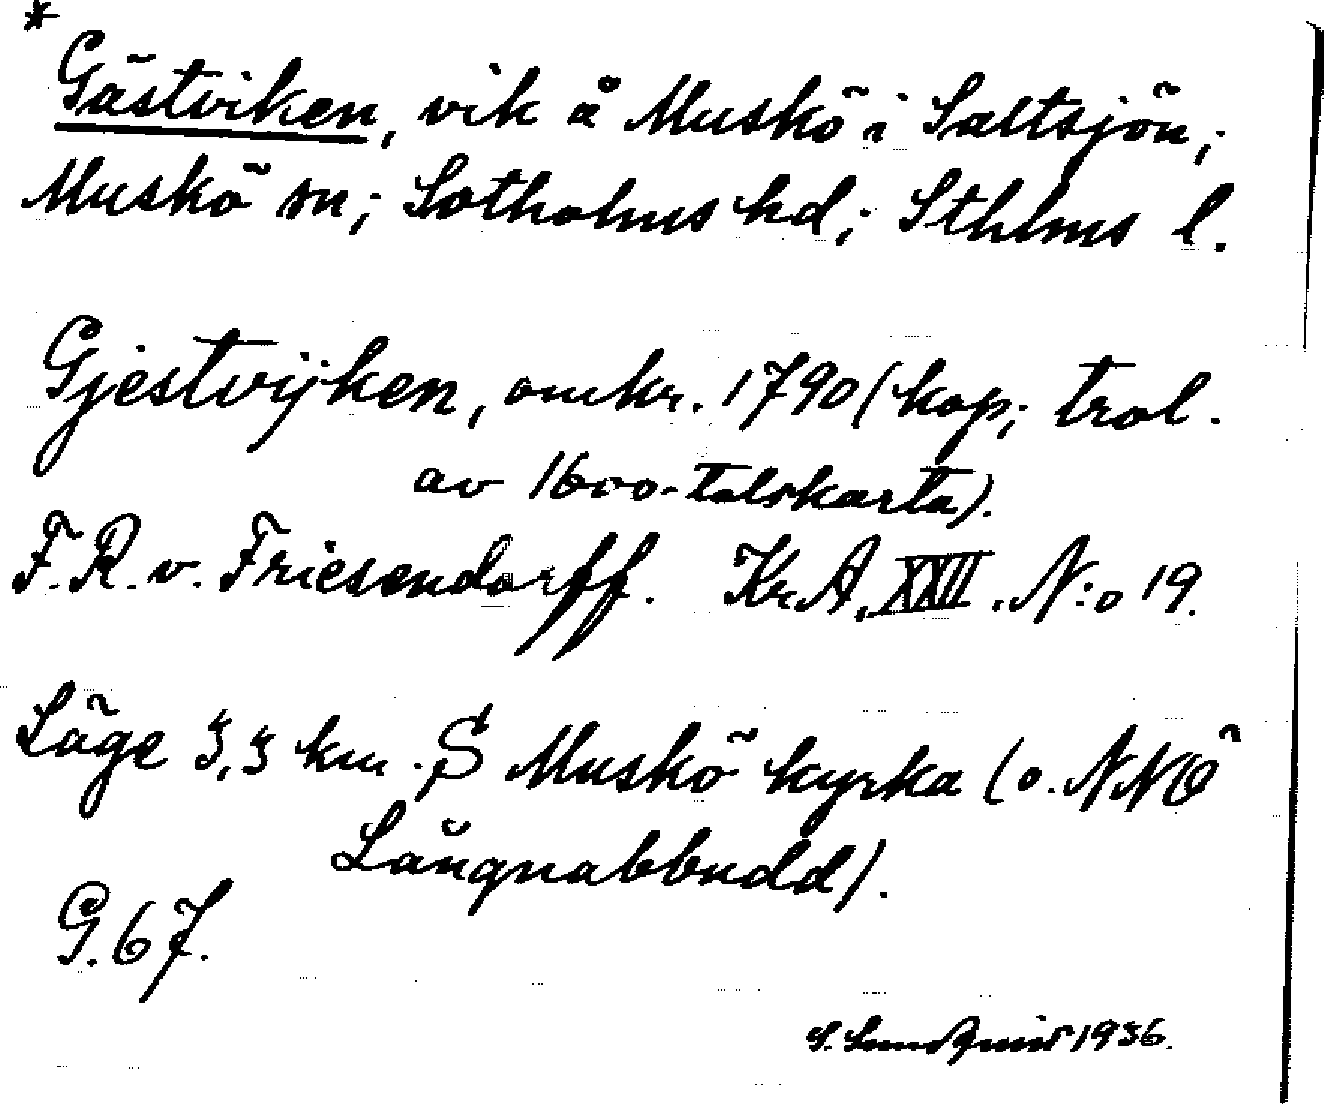 *
Gästviken, vik å Muskö i Saltsjön;
Muskö sn; Sotholms hd; Sthlms l.
Gjestvijken, omkr. 1790 (kop; trol.
av 1600-talskarta).
F. R. v. Friesendorff. Kr.A. XXII. N:o 19.
Läge 3,3 km. S Muskö kyrka (o. NNÖ
Långnabbudd).
G. 67.
S. Sundquist 1936.